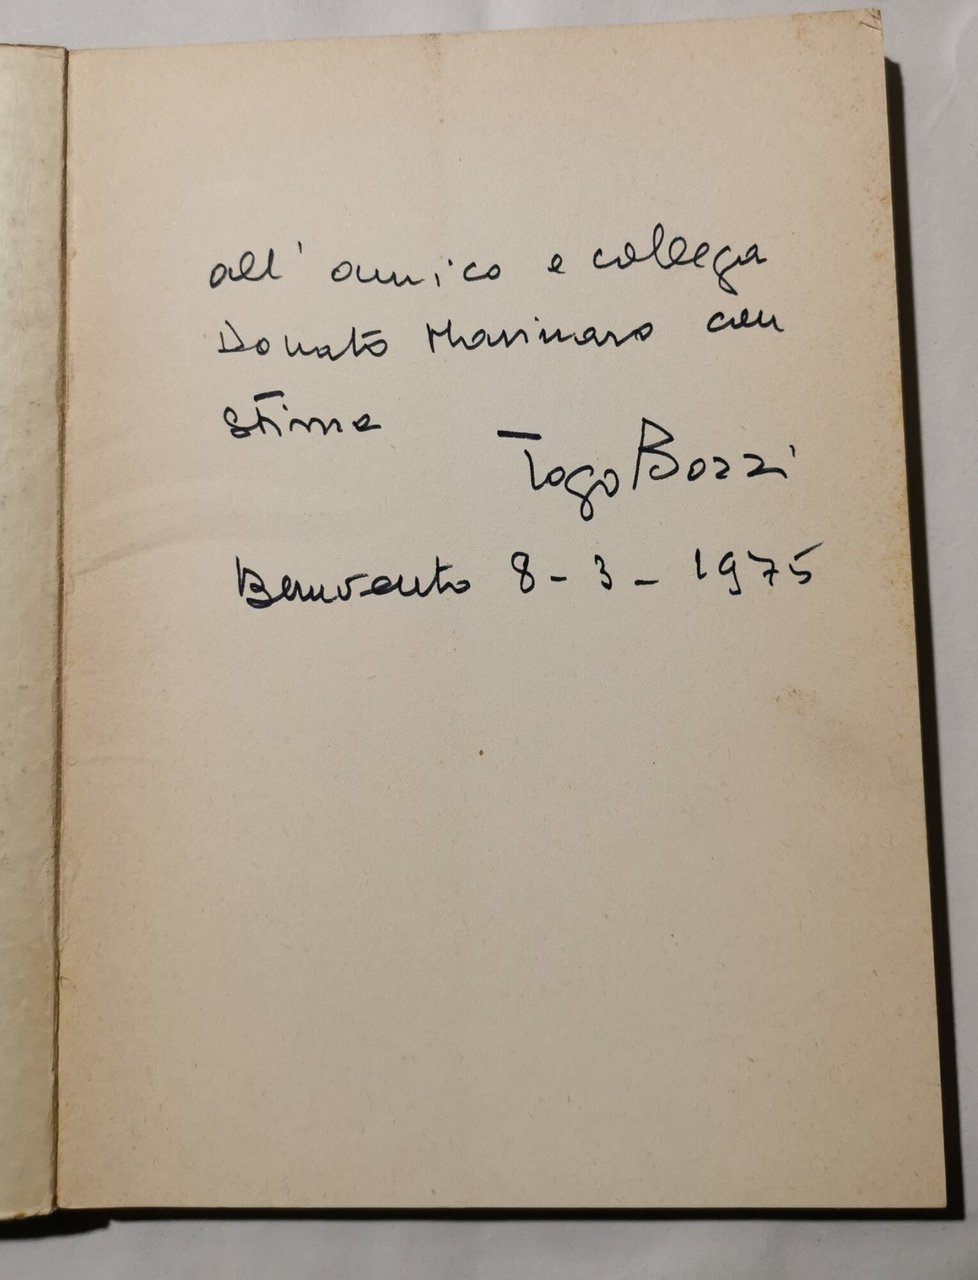 all' amico e collega
Donato Marinaro con
stima
Togo Bozzi
Benevento 8-3-1975